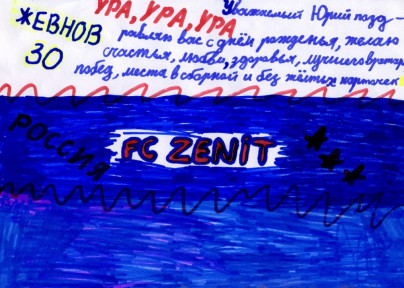 УРА, УРА, УРА
ЖЕВНОВ
30
Уважаемый Юрий позд-
равляю вас с днём рожденья, желаю
счастья, любви, здоровья, лучшего вратаря,
побед, места в сборной и без жёлтых карточек
РОССИЯ
FC ZENIT